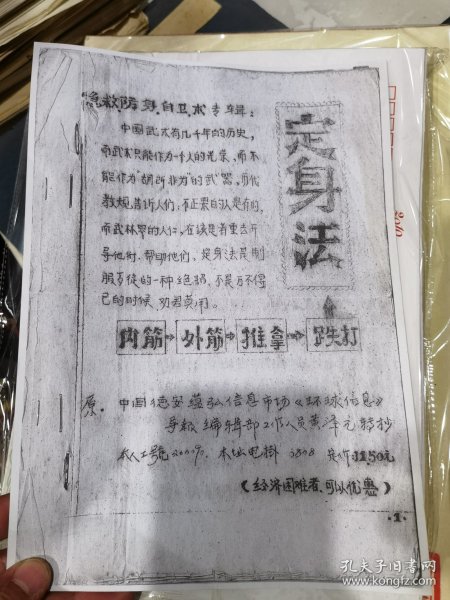 急救防身自卫术专辑:
定身法
中国武术有几千年的历史,
而武术只能作为个人的光荣,而不
能作为胡所非为"的武"器,历代
教规,告诉人们:不正累的人是有的,
而武林界的人仁,在该是着重去开
导他们,帮助他们,定身法是制
服歹徒的一种绝招,不是万不得
已的时候,切君莫用。
内筋→外筋→推拿→跌打
原.中国德安 弘信息市场《环球信息》
编辑部工作人员黄泽元转抄
本人工號 本址电掛 3808
(经济困难者,可以优惠)
·1·
孔夫子旧书网
www.kongfz.com